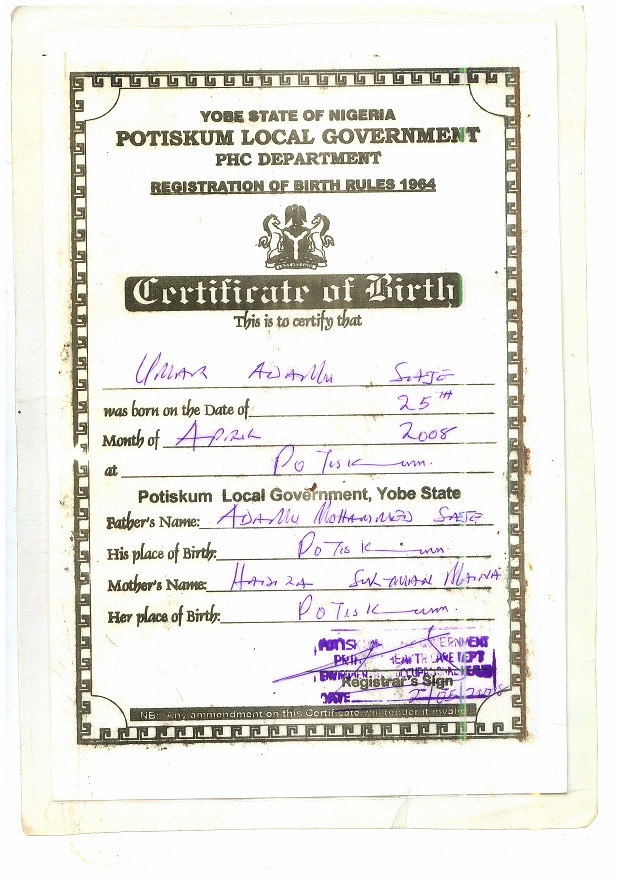 YOBE STATE OF NIGERIA
POTISKUM LOCAL GOVERNMENT
PHC DEPARTMENT
REGISTRATION OF BIRTH RULES 1964
Certificate of Birth
This is to certify that
UMAR ADAMU
was born on the Date of 25TH
Month of APRIL 2008
at POTISKUM.
Potiskum Local Government, Yobe State
Father's Name: ADAMU MOHAMMED
His place of Birth: POTISKUM.
Mother's Name: SULEIMAN MAINA
Her place of Birth: POTISKUM.
HEALTH CARE DEPT
Registrar's Sign
DATE
NB: Any ammendment on this Certificate will render it invalid